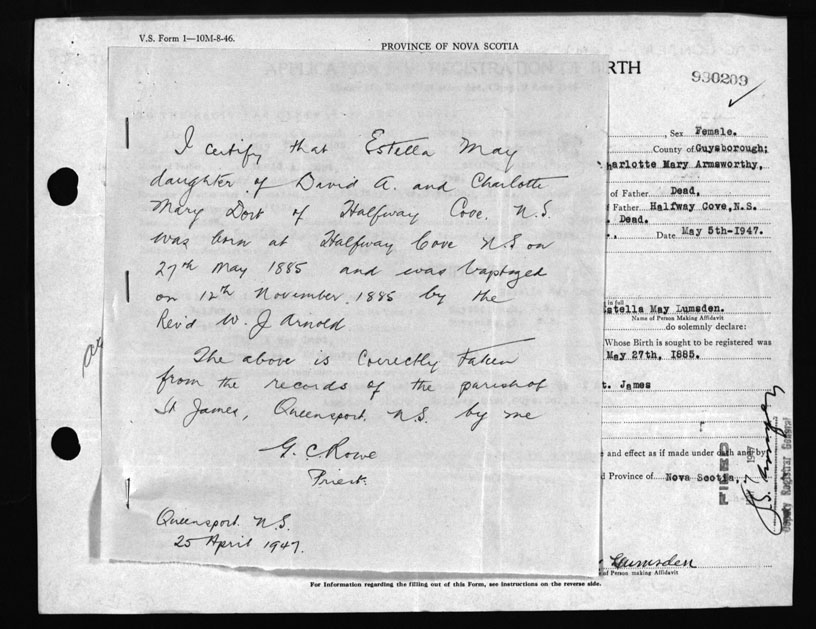 V.S. Form 1—10M-8-46.
PROVINCE OF NOVA SCOTIA
RTH
930209
I certify that Estella May
daughter of David A. and Charlotte
Mary Dort of Halfway Cove, N.S.
was born at Halfway Cove N S on
27th May 1885 and was baptized
on 12th November 1885 by the
Rev'd W. J Arnold
The above is correctly taken
from the records of the parish of
St James, Queensport, N.S. by me
G. C Rowe
Priest.
Queensport. N.S.
25 April 1947.
, Sex Female.
County of Guysborough;
harlotte Mary Armsworthy,
of Father Dead,
Father Halfway Cove,N.S.
. Dead.
Date May 5th-1947.
in full
Estella May Lumsden.
Name of Person Making Affidavit
do solemnly declare:
Whose Birth is sought to be registered was
May 27th, 1885.
t. James
and effect as if made under oath and by
d Province of Nova Scotia,
FILED
1947
Deputy Registrar General
Lumsden
of Person making Affidavit
For Information regarding the filling out of this Form, see instructions on the reverse side.